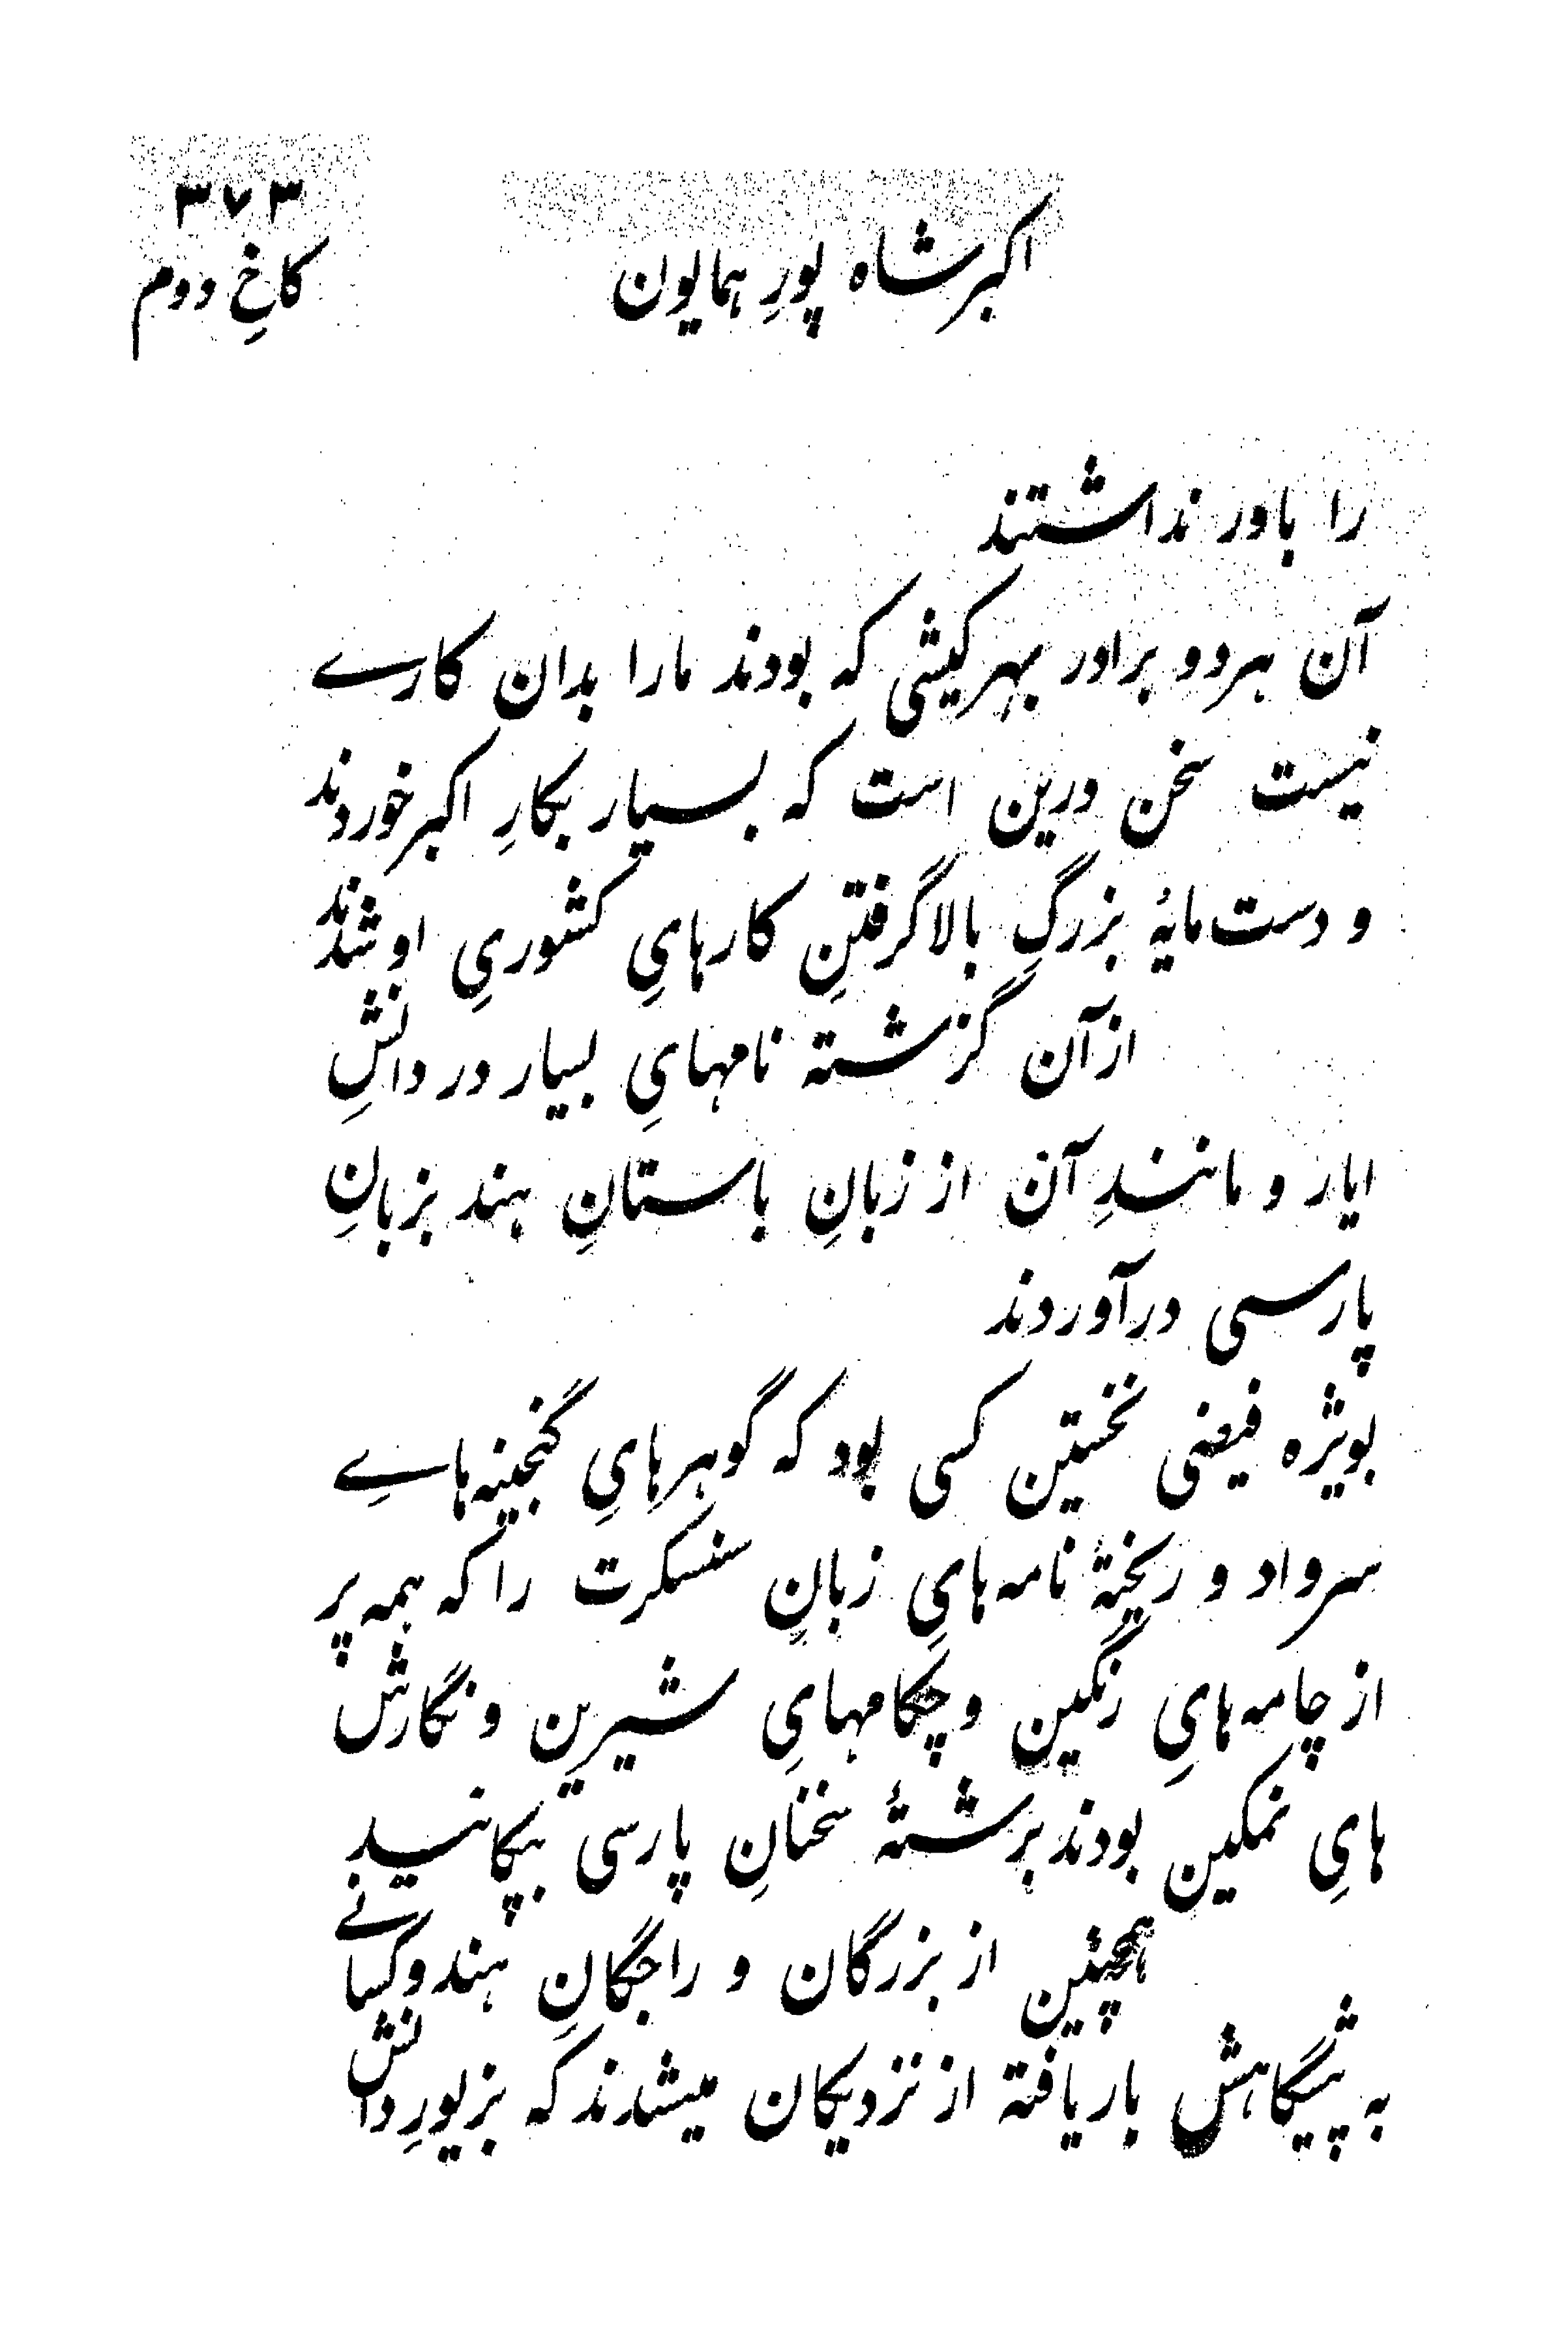 ۳۷۳
اکبرشاه پورِ همایون
کاخِ دوم
را باور نداشتند
آن هردو برادر بهرکیشی که بودند مارا بدان کارے
نیست سخن درین است که بسیار بکارِ اکبر خوردند
و دست‌مایهٔ بزرگِ بالا گرفتنِ کارهایِ کشوریِ او شدند
ازآن گزشته نامهایِ بسیار در دانشِ
ایار و مانندِ آن از زبانِ باستانِ هند بزبانِ
پارسی درآوردند
بویژه فیضی نخستین کسی بود که گوهرهایِ گنجینه‌هاےِ
سرواد و ریختهٔ نامه‌هایِ زبانِ سنسکرت را که همه پر
از چامه‌هایِ رنگین و چکامهایِ شیرین و نگارش
هایِ نمکین بودند برشتهٔ سخنانِ پارسی بپکانید
همچنین از بزرگان و راجگانِ هند و کسانے
به پیشگاهش بار یافته از نزدیکان میشدند که بزیورِ دانش